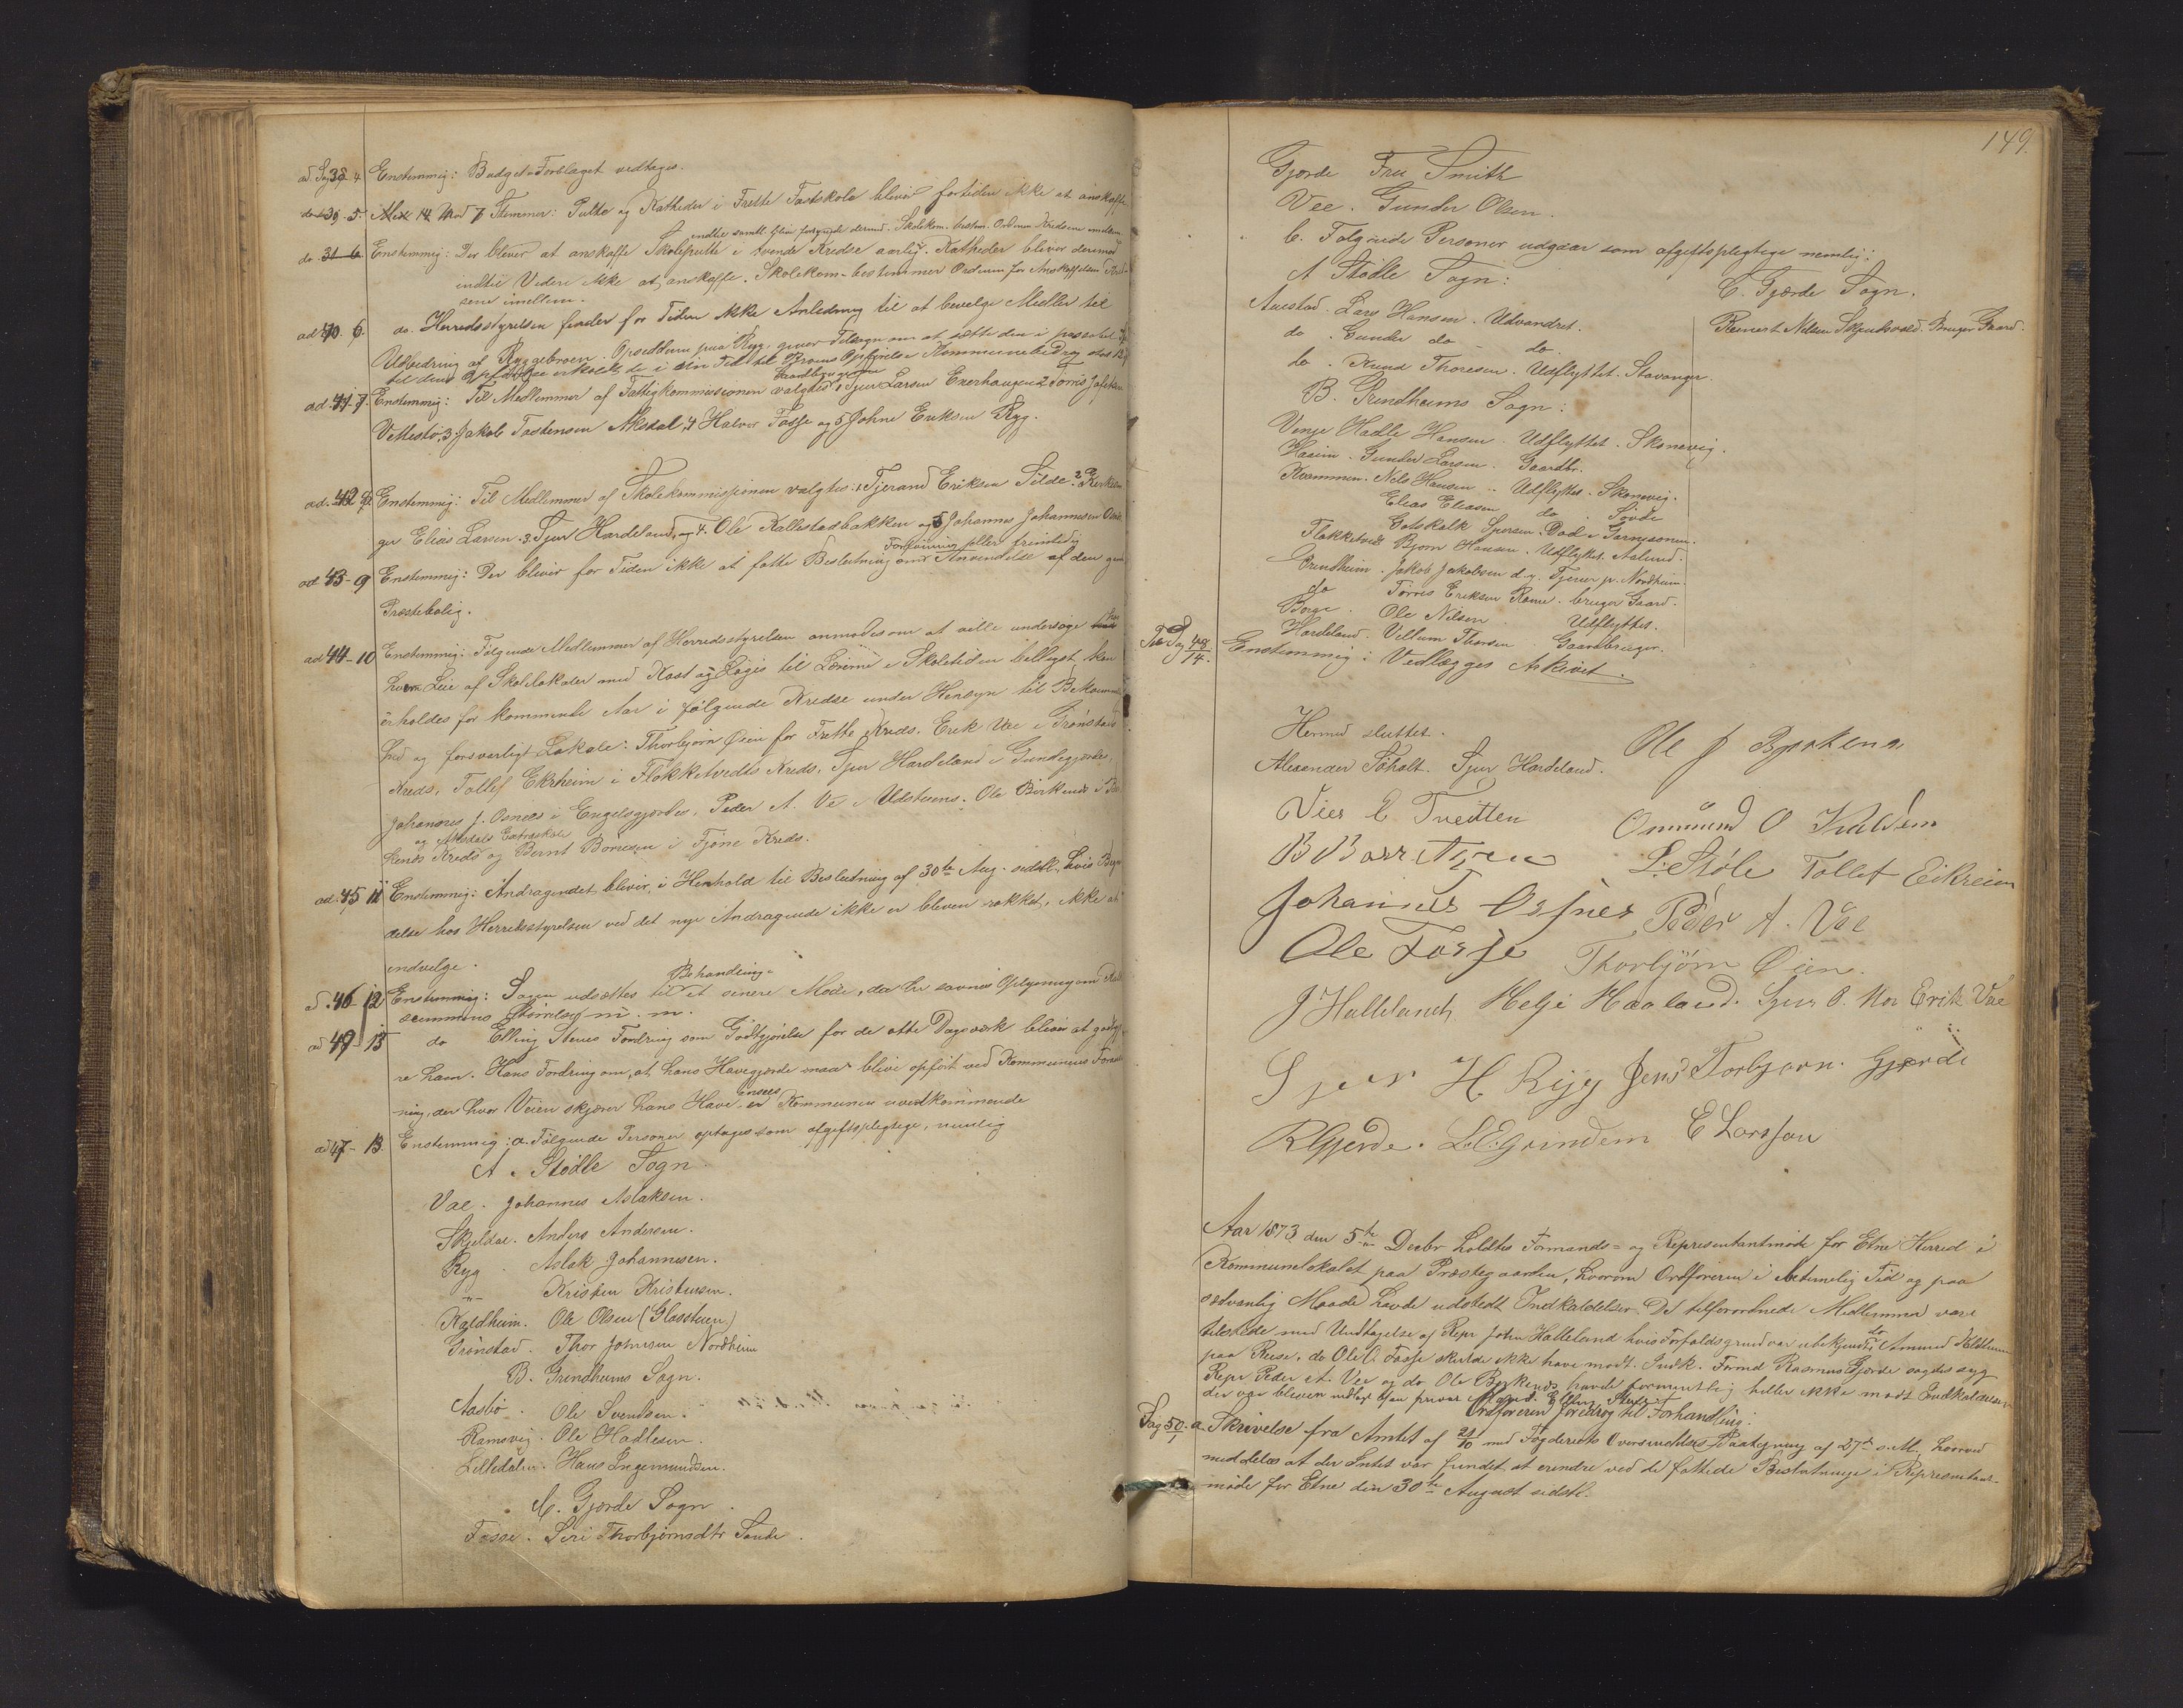 ad Sag 38 4 Enstemmig: Budget-Forslaget vedtages.
do 39 5. Med 14 Mod 7 Stemmer: Pulte og Katheder i Frette Fastskole bliver fortiden ikke at anskaffe
indtil samtl. blive forsynede dermed. Skolekom. bestem. Ordenen Kredsene imellem
do 31 6 Enstemmig: Der bliver at anskaffe Skolepulte i tvende Kredse aarlig. Katheder bliver derimod
indtil Videre ikke at anskaffe. Skolekom. bestemmer Ordenen for Anskaffelsen Kred-
sene imellem.
ad 40. 6. do. Herredsstyrelsen finder for Tiden ikke Anledning til at bevilge Midler til
Udbedring af Ryggebroen. Opsidderne paa Ryg giver Tilsagn om at sætte den i
til dens Opførelse i sin Tid til Broens Opførelse Kommunebidrag
ad 41 7. Enstemmig: Til Medlemmer af Fattigkommissionen valgtes 1 Sjur Larsen Exerhaugen 2 Torris Jafetsen
Vettestø, 3 Jakob Tostensen Aksdal, 4 Halvor Fosse og 5 Johne Eriksen Ryg.
ad. 42 8. Enstemmig: Til Medlemmer af Skolekommissionen valgtes: 1 Tjerand Eriksen Silde 2
ger Elias Larsen 3. Sjur Hardeland, og 4. Ole Kallestadbakken og 5 Johannes Johannesen Osnes
ad 43 - 9 Enstemmig: Der bliver for Tiden ikke at fatte Beslutning om Anvendelse af den gamle
Præstebolig.
ad 44 - 10 Enstemmig: Følgende Medlemmer af Herredsstyrelsen anmodes om at ville undersøge
hvem Leie af Skolelokaler med Kost og Logis til Lærerne i Skoletiden billigst kan
erholdes for kommende Aar i følgende Kredse under Hensyn til Bekvemme-
hed og forsvarligt Lokale: Thorbjørn Øien for Frette Kreds, Erik Vae i Grønstads
Kreds, Tollef Ekrheim i Flokketvedts Kreds, Sjur Hardeland i Gundegjerdes,
Johannes J. Osnes i Engelsgjerdes, Peder A. Ve i Udstevens, Ole Birkenes i
og Aksdals Extraskole
kenes Kreds og Bernt Børresen i Fjøne Kreds.
ad. 45 11 Enstemmig: Andragendet bliver, i Henhold til Beslutning af 30te Aug. sidstl., hvis
delse hos Herredsstyrelsen ved det nye Andragende ikke er bleven rokket, ikke at
indvilge.
Behandling
ad. 46 - 12 Enstemmig: Sagen udsættes til et senere Møde, da her savnes Oplysning om
sammens Størrelse m. m.
ad 49 - 13 do Elling Stenes Fordring som Godtgjørelse for de otte Dagsværk bliver at godtgjø-
re ham. Hans Fordring om, at hans Havegjerde maa blive opført ved Kommunens Foranstalt-
ning, der hvor Veien skjærer hans Have ansees Kommunen uvedkommende
ad 47 - 13. Enstemmig: a. Følgende Personer optages som afgiftspligtige, nemlig
A. Stødle Sogn.
Vae. Johannes Aslaksen.
Skjeldal. Anders Andersen.
Ryg Aslak Johannesen.
-"- Kristen Kristensen.
Kjeldheim. Ole Olsen (Glassteen)
Grønstad. Thor Johnsen Nordheim
B. Grindheims Sogn.
Aasbø. Ole Svendsen.
Ramsvig. Ole Hadlesen.
Lilledalen. Hans Ingemundsen.
C. Gjerde Sogn.
Fosse. Siri Thorbjørnsdtr Sande.
149.
Gjerde Fru Smith
Vee. Gunder Olsen.
b. Følgende Personer udgaar som afgiftspligtige nemlig:
A Stødle Sogn:
Austad. Lars Hansen. Udvandret.
do. Gunder do - do.
do. Knud Thoresen. Udflyttet. Stavanger.
B. Grindheims Sogn:
Vinje Hadle Hansen. Udflyttet. Skonevig.
Haaim. Gunder Larsen. Gaardbr.
Krammen. Nils Hansen. Udflyttet. Skonevig.
Elias Eliasen do. Søvde
Gotskalk Sjursen. Død i Garnisonen.
Flokketvedt Bjørn Hansen. Udflyttet. Aalund.
Grindheim. Jakob Jakobsen d.y. Tjener p. Nordheim.
do Tørres Eriksen Rame. bruger Gaard.
Borge. Ole Nilsen Udflyttet.
Hardeland. Villum Thorsen Gaardbruger.
C. Gjerde Sogn.
Reinert Nilsen Skjensvold. Bruger Gaard.
Til Sag 48/14. Enstemmig: Vedlægges Arkivet.
Hermed sluttet.
Alexander Tøholt. Sjur Hardeland. Ole J Byrkenes
Vier E Tveitten Ommund O Kieldem
B Børresen L. Støle Tollef Eikreim
Johannes Osnes Peder A. Vae
Ole Fosse Thorbjørn Øien.
J Halleland Helje Haaland. Sjur O. Erik Vae
Sjur H Ryg Jens Torbjørn. Gjerde
R Gjerde. L. E. Grindem E Larsson
Aar 1873 den 5te Decbr holdtes Formands- og Representantmøde for Etne Herred i
Kommunelokalet paa Præstegaarden, hvorom Ordføreren i betimelig Tid og paa
sedvanlig Maade havde udstedt Indkaldelser. De tilforordnede Medlemmer vare
tilstede med Undtagelse af Repr John Halleland hvis Forfaldsgrund var ubekjendt, do Amund Kieldheim
paa Reise, do Ole O. Fosse skulde ikke have modt. Indk. Formd Rasmus Gjerde sagdes syg
Repr Peder A. Vee og do Ole Byrkenes havde formentlig heller ikke modt Indkaldelsen
Ordføreren foredrog til Forhandling:
Sag 50/1. a Skrivelse fra Amtet af 21/10 med Fogderiets Oversendelses Paategning af 27de s. M., hvorved
meddeles at der Intet var fundet at erindre ved de fattede Beslutninger i Representant-
møde for Etne den 30te August sidstl.